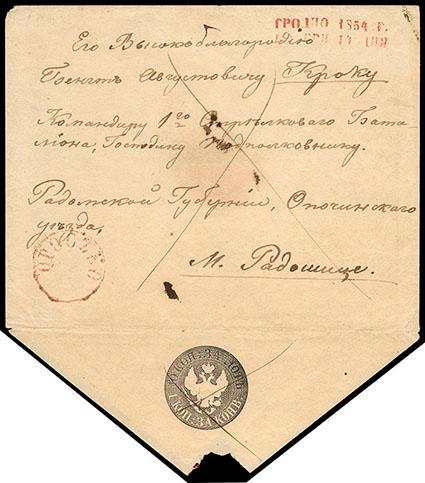 ГРОДНО 1854 Г.
Его Высокоблагородію
Бенгт Августовичу Кроку
Командиру 1го Стрѣлковаго Бата-
ліона, Господину Подполковнику.
Радомской Губерніи, Опочинскаго
уѣзда,
М. Радошице.
1 КОП. ЗА КОНВ.